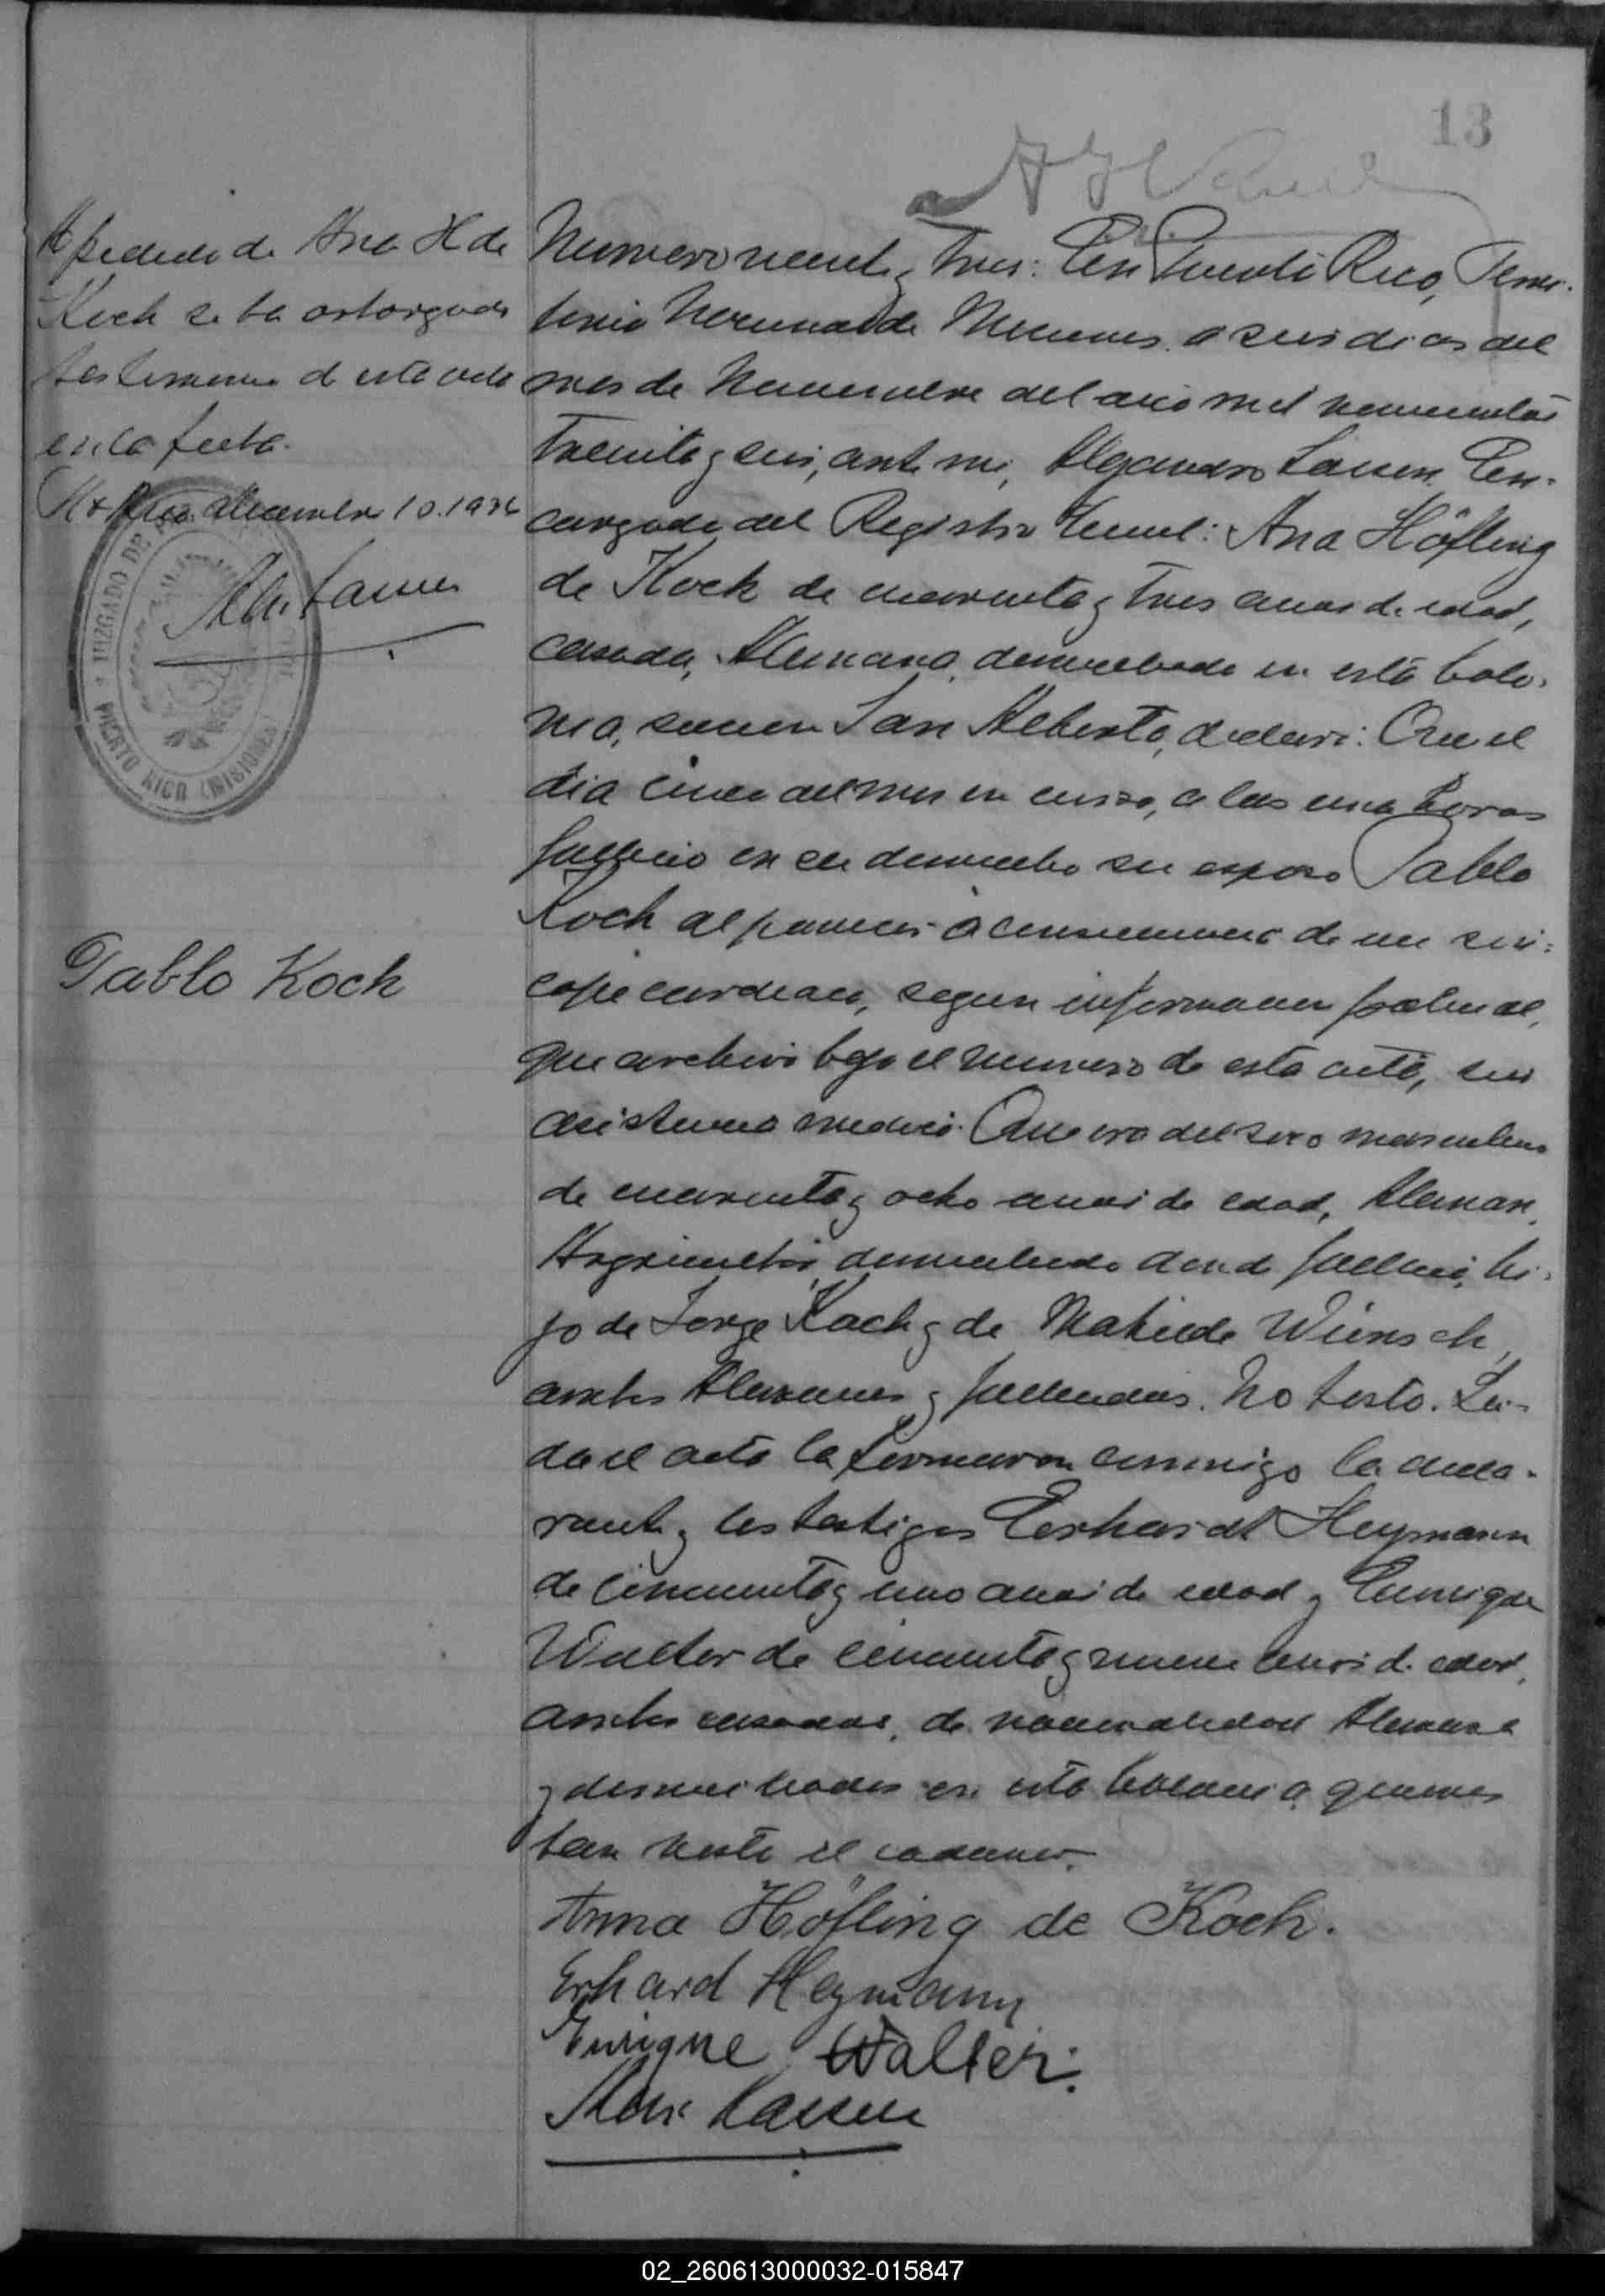 13
A pedido de Ana H de
Koch se ha otorgado
testimonio de esta acta
en la fecha.
Pto Rico Diciembre 10.1936
JUZGADO DE PAZ
PUERTO RICO (MISIONES)
Alej. Lassen
Pablo Koch
Numero veinte y tres: En Puerto Rico, Terri-
torio Nacional de Misiones, a seis dias del
mes de Noviembre del año mil novecientos
treinta y seis, ante mi, Alejandro Lassen, En-
cargado del Registro Civil: Ana Höfling
de Koch de cuarenta y tres años de edad,
casada, Alemana, domiciliada en esta Colo-
nia, seccion San Alberto, declaró: Que el
dia cinco del mes en curso, a las once horas
falleció en su domicilio su esposo Pablo
Koch al parecer a consecuencia de un sin-
cope cardiaco, segun informacion policial,
que archivo bajo el numero de esta acta, sin
asistencia medica. Que era del sexo masculino
de cuarenta y ocho años de edad, Aleman,
Agricultor, domiciliado donde falleció, hi-
jo de Jorge Koch y de Matilde Wünsch,
ambos Alemanes y fallecidos. No testó. Lei-
da el acta la firmaron conmigo la decla-
rante y los testigos Erhardt Heymann
de cincuenta y uno años de edad y Enrique
Walter de cincuenta y nueve años de edad,
ambos casados, de nacionalidad Alemana
y domiciliados en esta Colonia, quienes
han visto el cadaver.
Anna Höfling de Koch.
Erhard Heymann
Enrique Walter.
Alej. Lassen
02_260613000032-015847